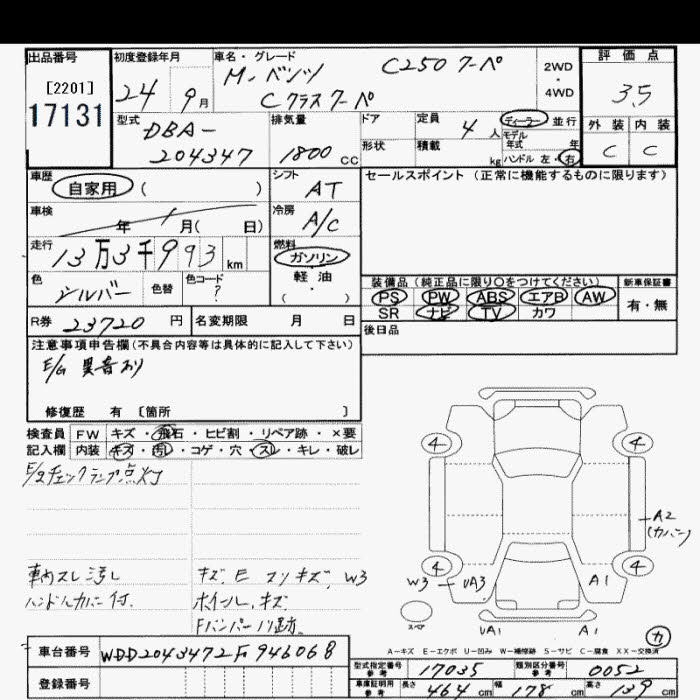 出品番号
[2201]
17131
初度登録年月
24 9月
車名・グレード
M.ベンツ C250クーペ
Cクラスクーペ
2WD
・
4WD
評価点
3.5
外装 内装
C C
型式
DBA-
204347
排気量
1800 CC
ドア
形状
定員 4人
積載 kg
ディーラー 並行
モデル年式 年
ハンドル 左・右
車歴
自家用 ( )
シフト
AT
セールスポイント (正常に機能するものに限ります)
車検
年 月( 日)
冷房
A/C
走行
13万3千993 km
燃料
ガソリン
軽・油
( )
色
シルバー
色替
色コード
?
装備品 (純正品に限り○をつけてください)
PS PW ABS エアB AW
SR ナビ TV カワ
新車保証書
有・無
R券 23720円
名変期限 月 日
後日品
注意事項申告欄(不具合内容等は具体的に記入して下さい)
E/G 異音あり
修復歴 有 〔箇所 〕
検査員 FW キズ・飛石・ヒビ割・リペア跡・×要
記入欄 内装 キズ・汚レ・コゲ・穴・スレ・キレ・破レ
E/gチェックランプ点灯
車内スレ汚し
ハンドルカバー付.
ホイール.キズ
4 4
A2
(カバー)
4 4
W3 UA3 A1
スペア
UA1 A1
カ
A-キズ E-エクボ U-凹み W-補修跡 S-サビ C-腐食 XX-交換済
車台番号 WDD2043472F946068
登録番号
型式指定番号
参考
17035
類別区分番号
参考
0052
車庫証明用
参考
長さ 464 cm 幅 178 cm 高さ 139 cm